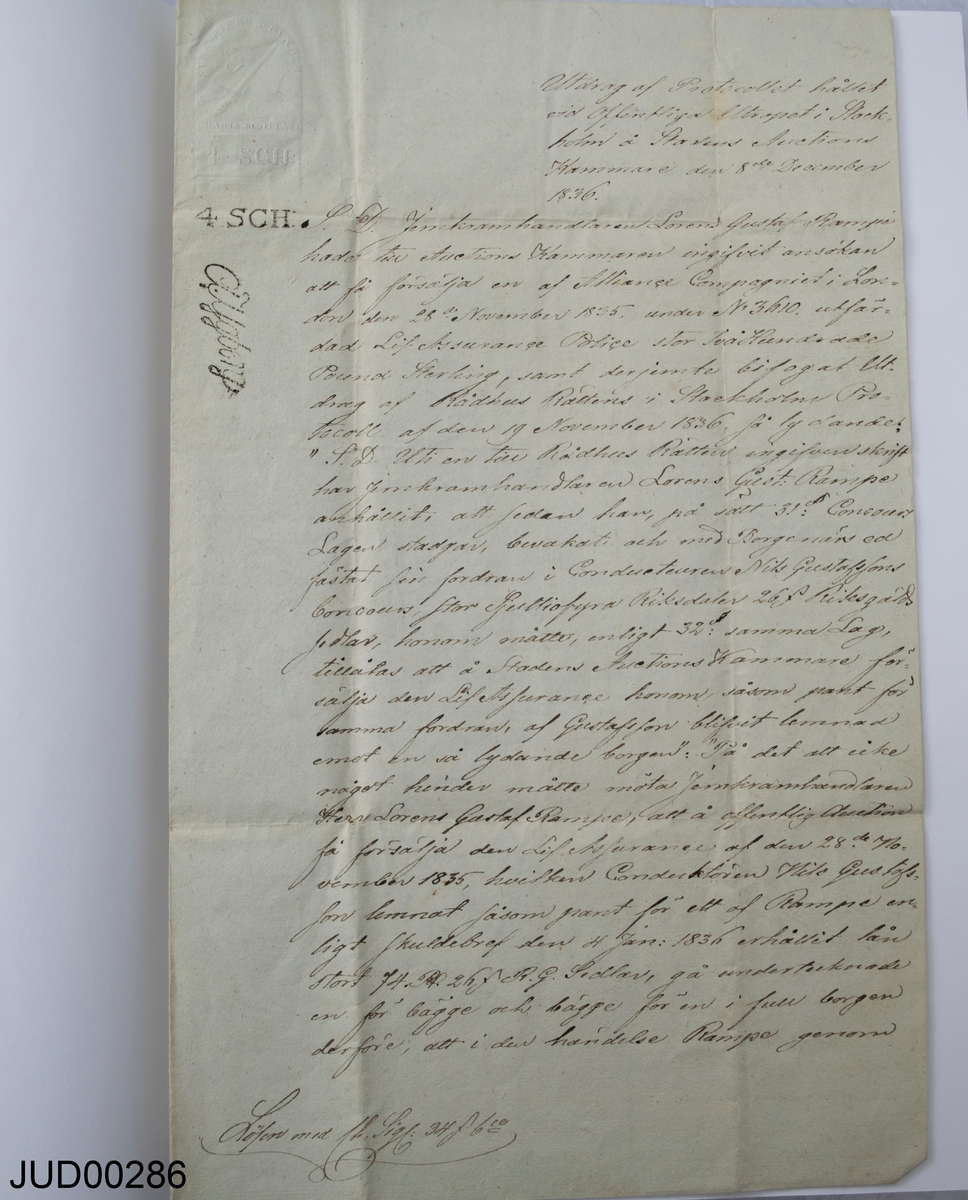 CHARTA SIGILLATA
4 SCH:
Utdrag af Protocollet hållet
vid Offentliga Utropet i Stock-
holm å Stadens Auctions
Kammare den 8de December
1836.
4 SCH.
S. D. Jernkramhandlaren Lorens Gustaf Rampe
hade till Auctions Kammaren ingifvit ansökan
att få försälja en af Alliance Compagniet i Lon-
don den 28de November 1835. under No 3610. utfär-
dad Lif Assurance Police stor Två Hundrade
Pound Sterling, samt derjemte bifogat Ut-
drag af Rådhus Rättens i Stockholm Pro-
tocoll af den 19 November 1836, så lydande:
"S. D. Uti en till Rådhus Rätten ingifven skrift
har Jernkramhandlaren Lorens Gust: Rampe
anhållit, att sedan han, på sätt 31: § Concours
Lagen stadgar, bevakat och med Borgenärs ed
fästat sin fordran i Conducteuren Nils Gustafssons
Concours, stor Sjuttiofyra Riksdaler 26 s Riksgälds
sedlar, honom måtte, enligt 32: § samma Lag,
tillåtas att å Stadens Auctions Kammare för-
sälja den Lif Assurance honom såsom pant för
samma fordran, af Gustafsson blifvit lemnad
emot en så lydande borgen": "På det att icke
något hinder måtte möta Jernkramhandlaren
Herr Lorens Gustaf Rampe, att å offentlig Auction
få försälja den Lif Assurance af den 28de No-
vember 1835, hvilken Conducktören Nils Gustafs-
son lemnat såsom pant för ett af Rampe en-
ligt skuldebref den 4 Jan: 1836 erhållit lån
stort 74 Rd 26 s R. G. Sedlar, gå undertecknade
en för bägge och bägge för en i full borgen
derföre, att i den händelse Rampe genom
Lösen med Ch. Sigl: 34 s bco
JUD00286